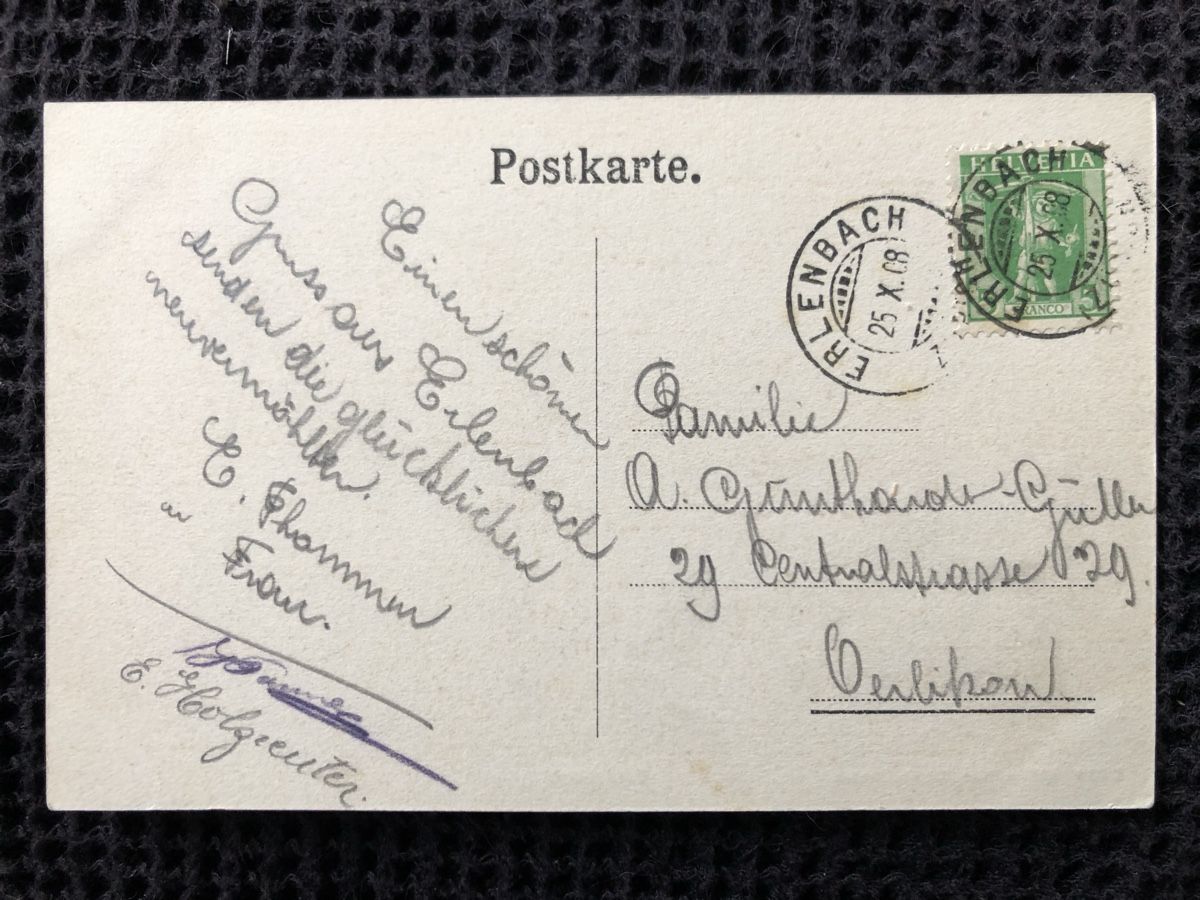 Postkarte.
Einen schönen
Gruss aus Erlenbach
senden die glücklichen
neuvermählten.
E. Thommen
u
Frau.
E. Holzreuter.
HELVETIA
5
FRANCO
ERLENBACH
25 X.08
ERLENBACH
25 X.08
Familie
A. Günthardt-Güller
29 Centralstrasse 29.
Oerlikon.